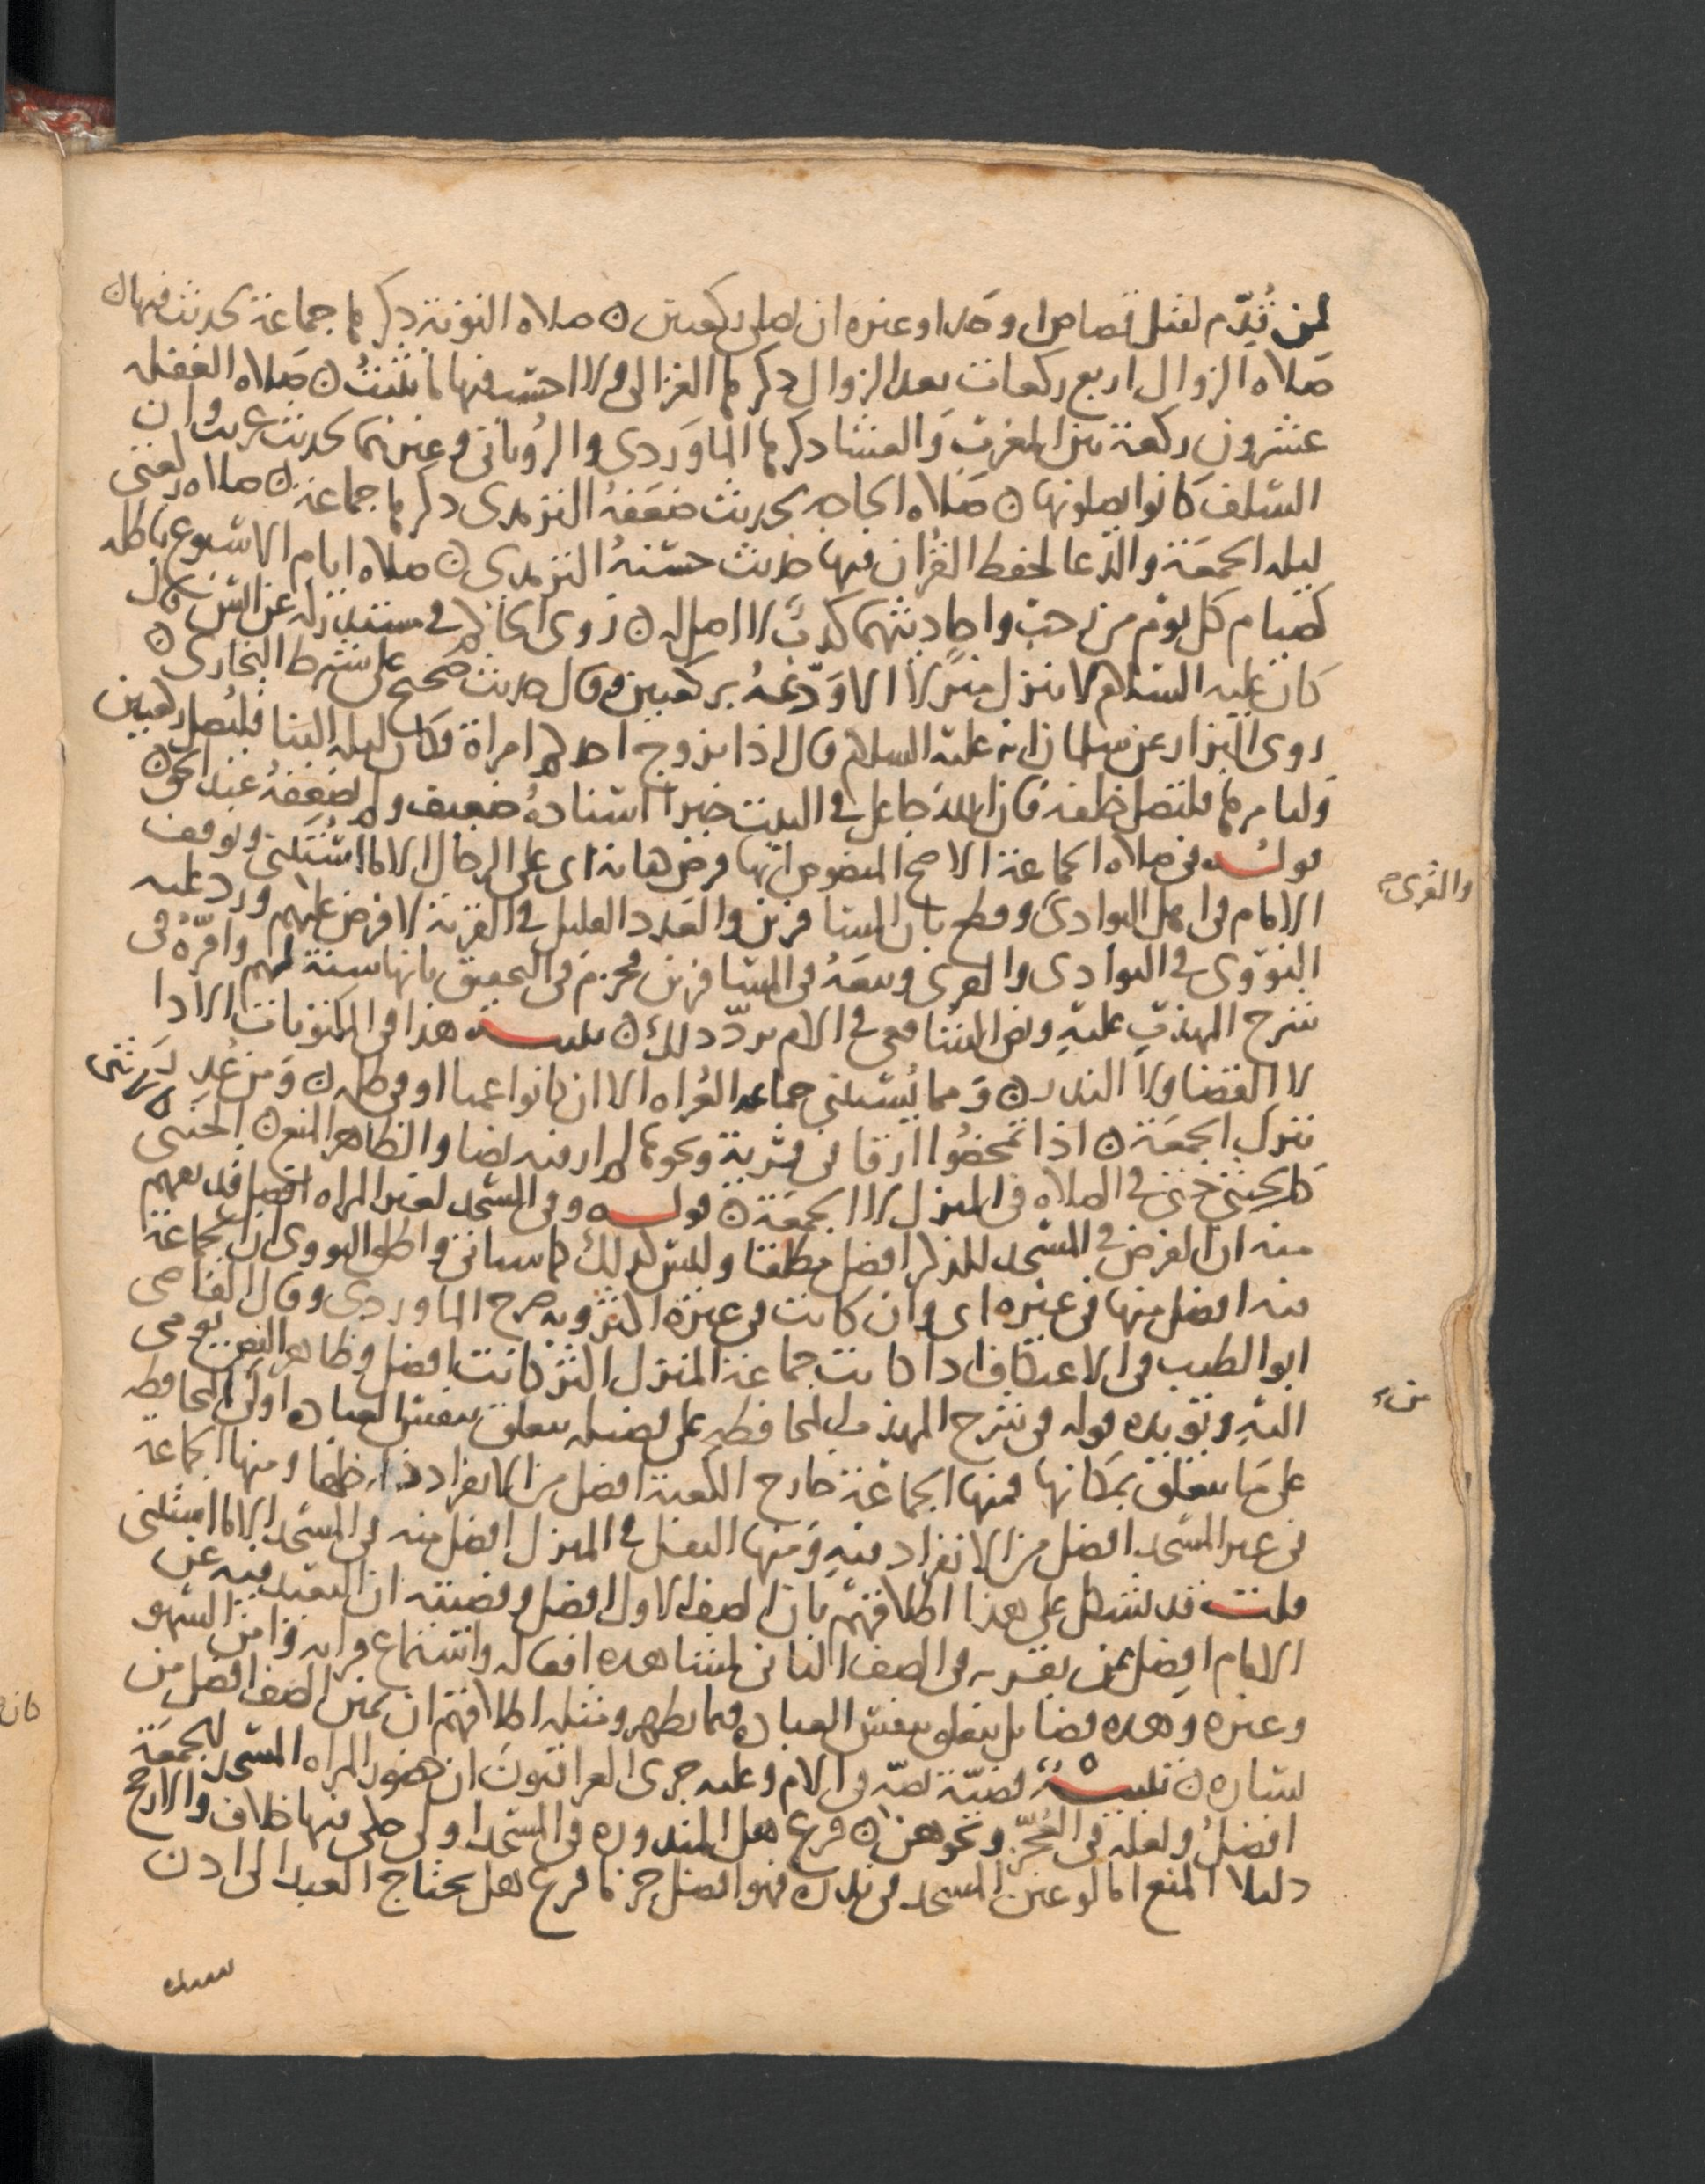 لمن قُدّم لقتل قصاص او حد او غيره ان يصلي ركعتين ن صلاه التوبة ذكرها جماعة بحديث فيها ن
صلاه الزوال اربع ركعات بعد الزوال ذكرها الغزالي ولا احسب فيها ما يثبت ن صلاه الغفله
عشرون ركعة بين المغرب والعشا ذكرها الماوردي والروياني وغيرهما بحديث غريب وان
السلف كانوا يصلونها ن صلاه الحاجه بحديث ضعفه الترمدي ذكرها جماعة ن صلاه ركعتي
ليله الجمعة والدعا لحفظ القران فيها حديث حسنه الترمدي ن صلاه ايام الاسبوع باطله
كصيام كل يوم من رجب واحاديثهما كذب لا اصل له ن روى الحاكم في مستدركه عن انس قال
كان عليه السلام لا ينزل منزلا الا ودّعه بركعتين وقال حديث صحيح على شرط البخاري ن
روى البزار عن سلمان انه عليه السلام قال اذا تزوج احدكم امراة فكان ليله البنا فليصل ركعتين
وليامرها فلتصل خلفه فان الله جاعل في البيت خيرا اسناده ضعيف ولم يضعفه عبد الحق ن
قوله في صلاه الجماعة الاصح المنصوص انها فرض كفاية اي على الرجال الا ما استثني وتوقف
الامام في اهل البوادي وقطع بان المسافرين والعدد القليل في القرية لا فرض عليهم ورد عليه
والقرى صح
النووي في البوادي والقرى وتبعه في المسافرين فجزم في التحقيق بانها سنة لهم واقره في
شرح المهذب عليه ونص الشافعي في الام يرد ذلك ن تنبيه هذا في المكتوبات الادا
لا القضا ولا النذر ن ومما يستثني جماعه العراه الا ان كانوا عميا او في ظلمه ن ومن عذر
بترك الجمعة ن اذا تمحضوا ارقا في قرية ونحوها لم ار فيه نصا والظاهر المنع ن الخنثى كالانثى
كما بحثته في الصلاه في المنزل لا الجمعة ن قوله وفي المسجد لغير المراه افضل قد يفهم
منه ان الفرض في المسجد للذكر افضل مطلقا وليس كذلك كما سياتي واطلق النووي ان الجماعة
منه افضل منها في غيره اي وان كانت في غيره اكثر وبه صرح الماوردي وقال القاضي
ابو الطيب في الاعتكاف اذا كانت جماعة المنزل اكثر كانت افضل وظاهر النص يومي
اليه ويؤيده قوله في شرح المهذب المحافظه على فضيله تتعلق بنفس العباده اولى من المحافظه
من
على ما يتعلق بمكانها فمنها الجماعة خارج الكعبة افضل من الانفراد داخلها ومنها الجماعة
في غير المسجد افضل من الانفراد فيه ومنها النفل في المنزل افضل منه في المسجد الا ما استثني
قلت قد يشكل على هذا اطلاقهم بان الصف الاول افضل وقضيته ان البعيد فيه عن
الامام افضل ممن يقربه في الصف الثاني لمشاهده افعاله واستماع قراته وامن السهو
وغيره وهذه فضائل تتعلق بنفس العباده فيما يظهر ومثله اطلاقهم ان يمين الصف افضل من
يساره ن تنبيه قضية نصه في الام وعليه جرى العراقيون ان حضور المراه المسجد للجمعة
افضل ولعله في العجز ونحوهن ن فرع هل المنذوره في المسجد اولى حكي فيها خلاف والارجح
دليلا المنع اما لو عين المسجد في نذره فهو افضل جزما فرع هل يحتاج العبد الى اذن
سيده